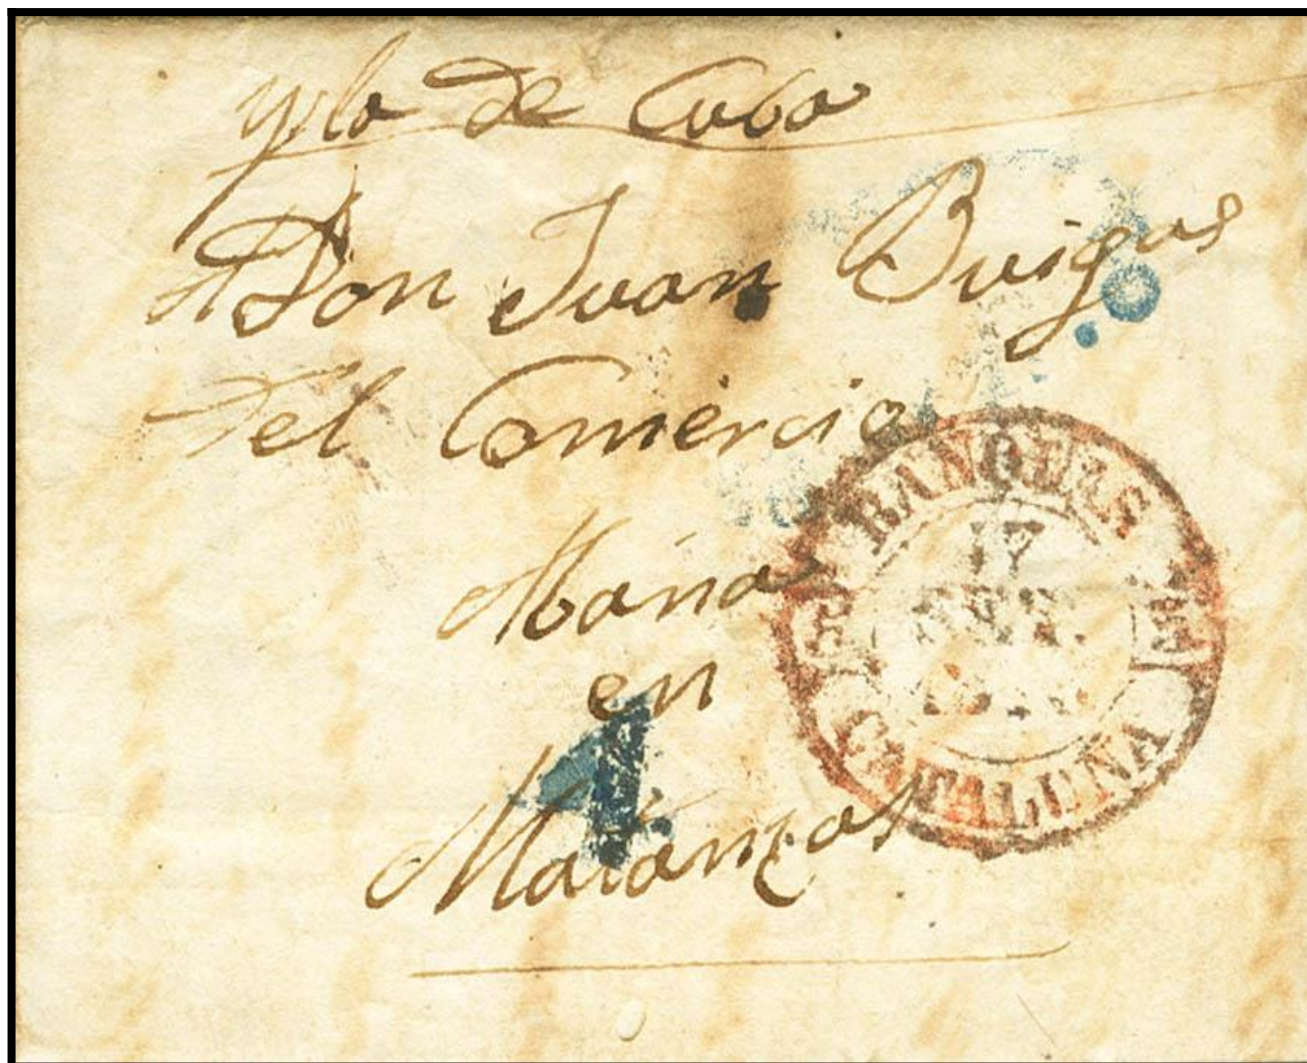 Ysla de Cuba
A Don Juan Buigas
Del Comercio
Abana
en
Matanzas
4
BAÑOLAS
17
CATALUÑA